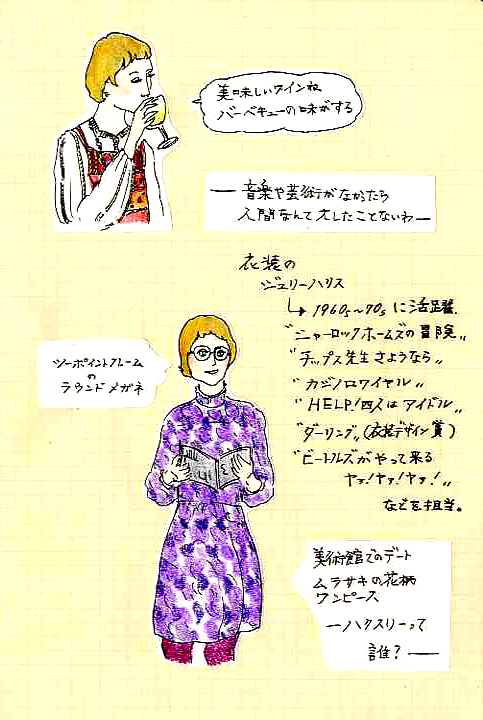 美味しいワインね
バーベキューの味がする
― 音楽や芸術がなかったら
人間なんて大したことないわ ―
衣装の
ジュリーハリス
↳ 1960s〜70s に活躍.
"シャーロックホームズの冒険"
"チップス先生さようなら"
"カジノロワイヤル"
"HELP!四人はアイドル"
"ダーリング"(衣装デザイン賞)
"ビートルズがやって来る
ヤァ!ヤァ!ヤァ!"
などを担当。
ツーポイントフレーム
の
ラウンドメガネ
美術館でのデート
ムラサキの花柄
ワンピース
―ハクスリーって
誰? ―